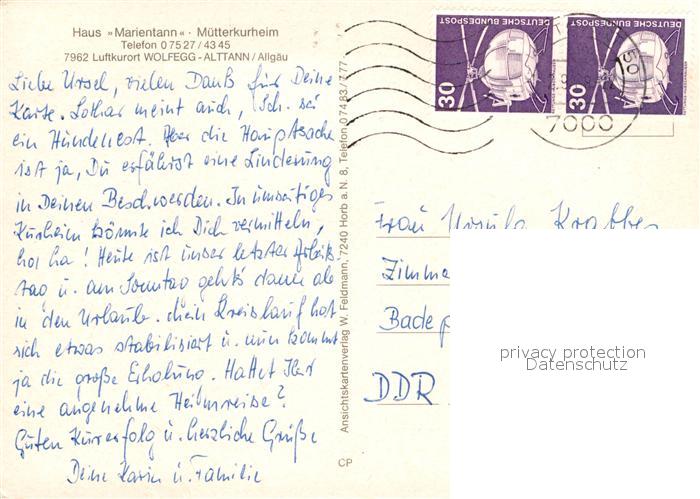 Haus »Marientann« · Mütterkurheim
Telefon 0 75 27 / 43 45
7962 Luftkurort WOLFEGG - ALTTANN / Allgäu
Liebe Ursel, vielen Dank für Deine
Karte. Lothar meint auch, Sch. sei
ein Hundenest. Aber die Hauptsache
ist ja, Du erfährst eine Linderung
in Deinen Beschwerden. In umseitiges
Kurheim könnte ich Dich vermitteln,
ha! Heute ist unser letzter Arbeits
tag u. am Sonntag geht's dann ab
in den Urlaub. Mein Kreislauf hat
sich etwas stabilisiert u. nun kommt
ja die große Erholung. Hattet Ihr
eine angenehme Heimreise?
Guten Kurerfolg u. herzliche Grüße
Deine Karin u. Familie
Ansichtskartenverlag W. Feldmann, 7240 Horb a. N. 8, Telefon 0 74 83 / 7 77
CP
DEUTSCHE BUNDESPOST
30
DEUTSCHE BUNDESPOST
30
7000
Frau Ursula Krabbes
Zimme
Bade
DDR
privacy protection
Datenschutz